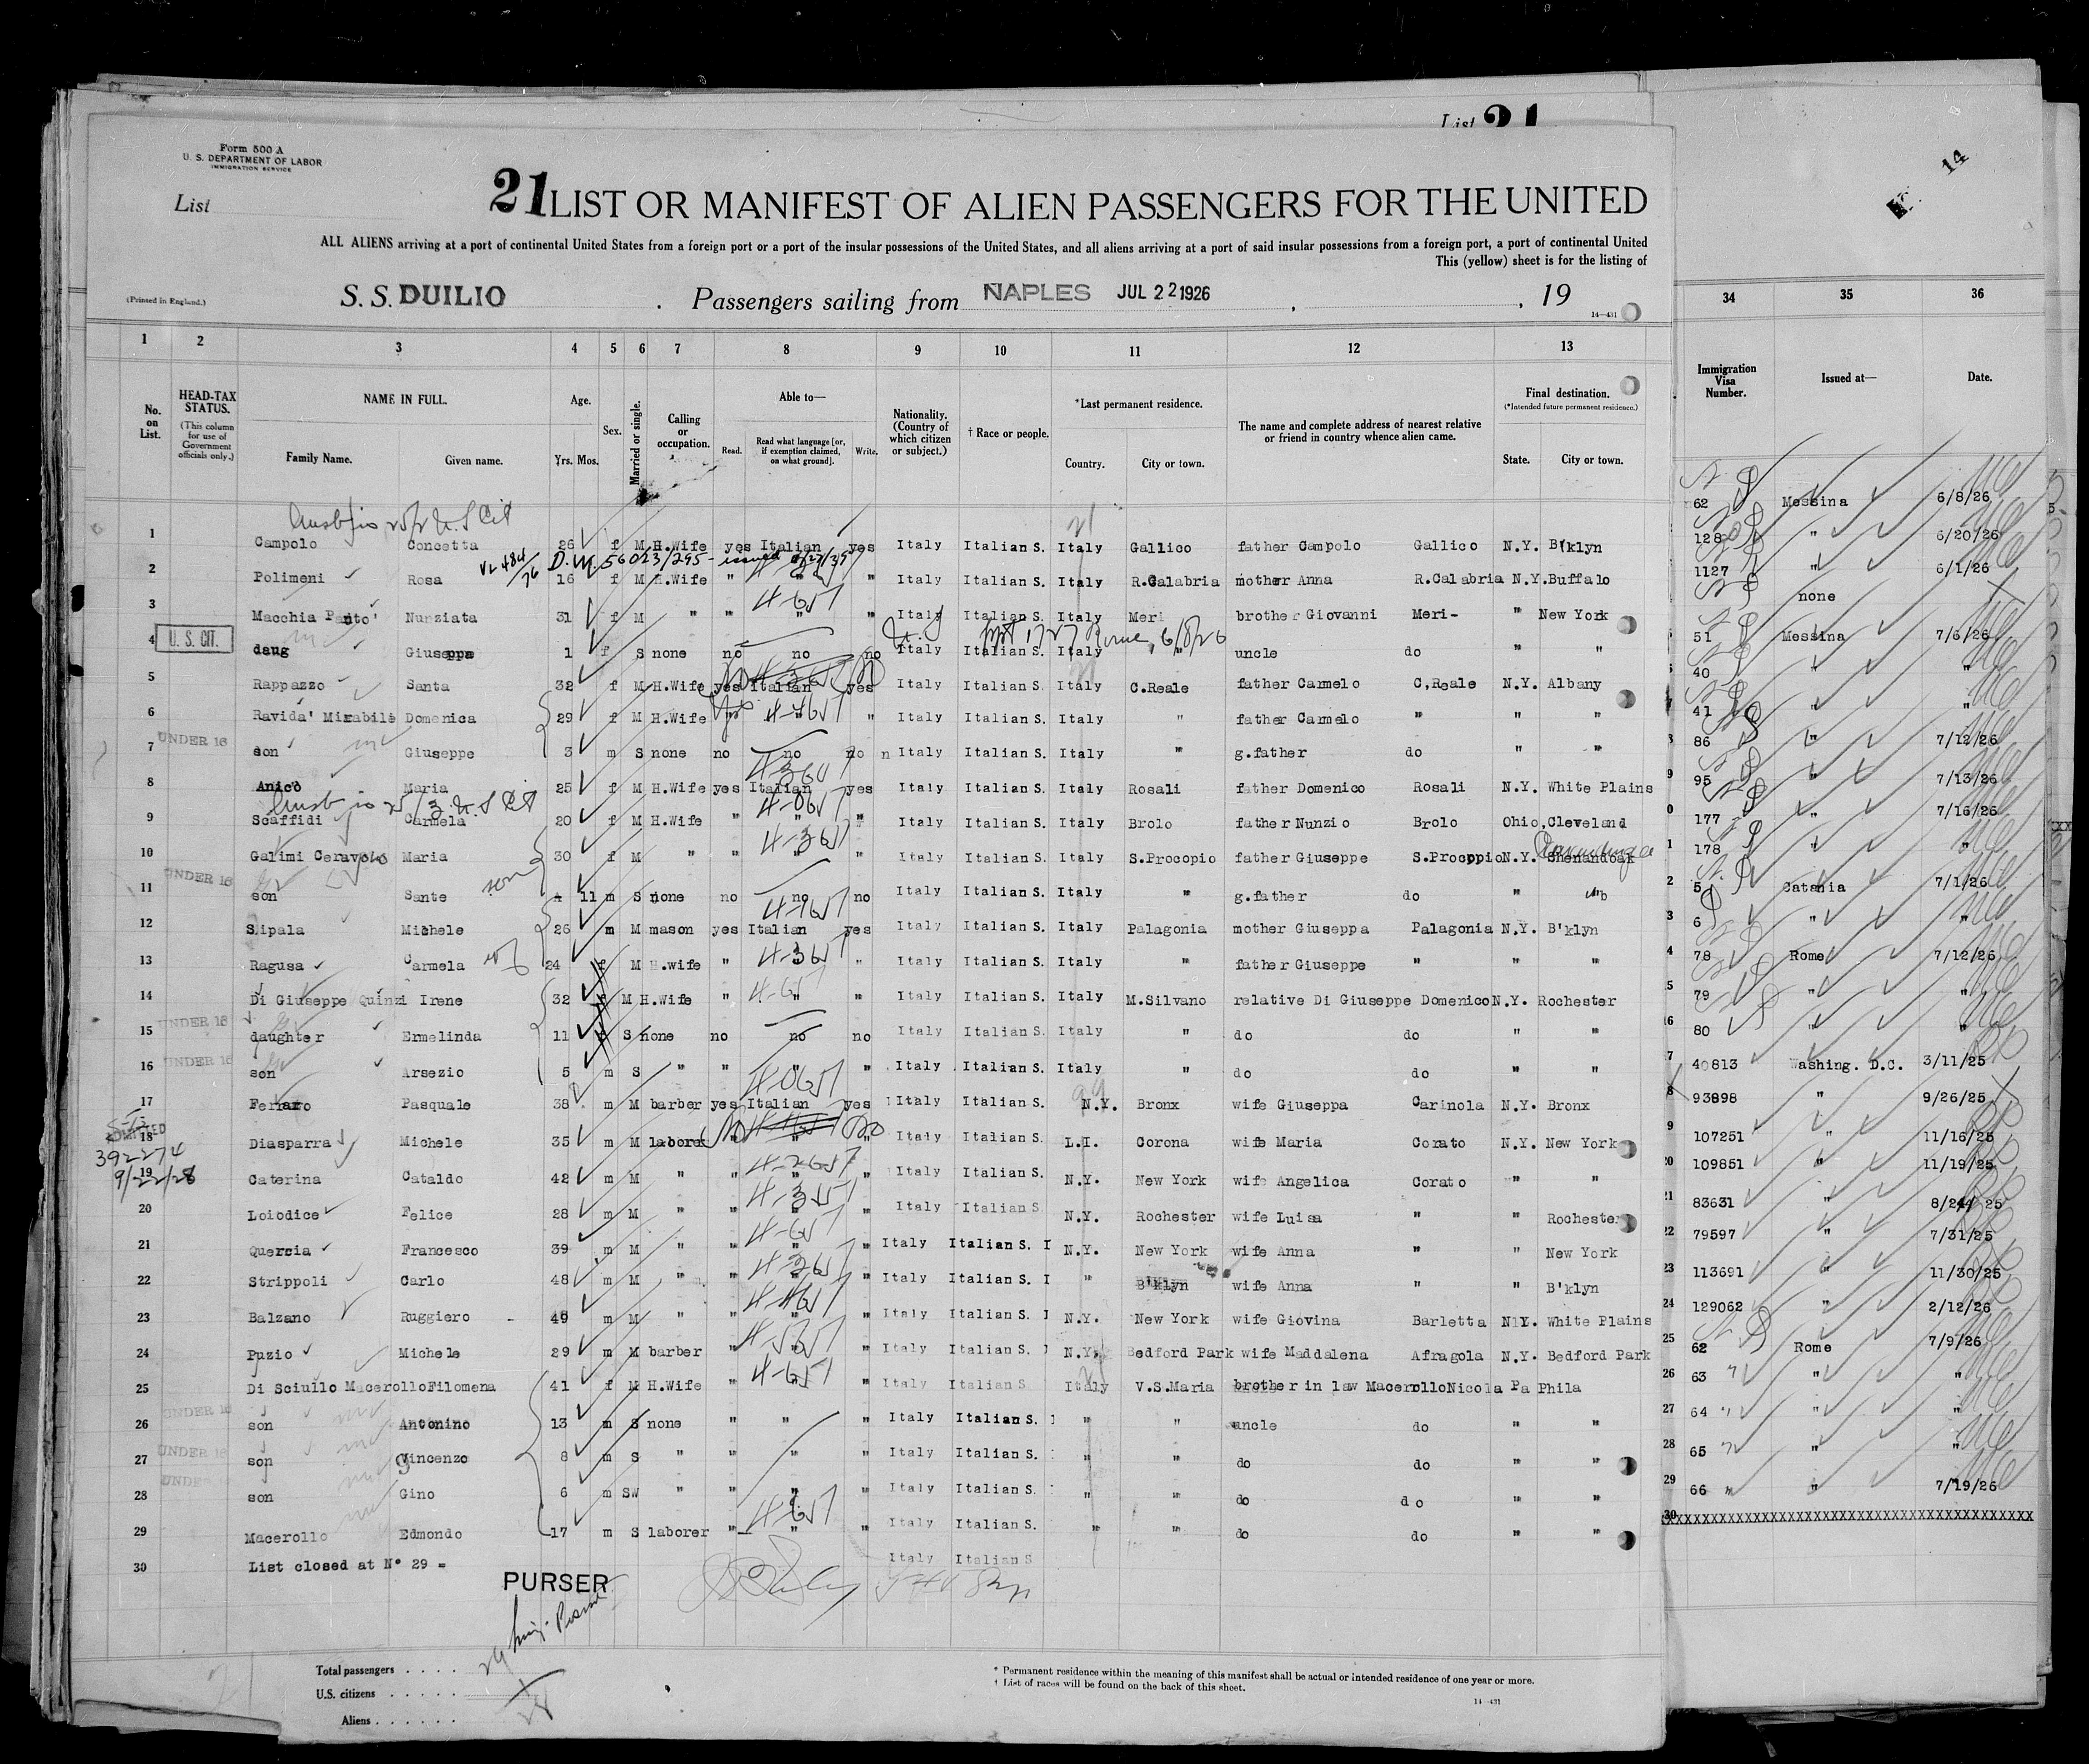 List 21
Form 500 A
U. S. DEPARTMENT OF LABOR
IMMIGRATION SERVICE
14
List
21 LIST OR MANIFEST OF ALIEN PASSENGERS FOR THE UNITED
ALL ALIENS arriving at a port of continental United States from a foreign port or a port of the insular possessions of the United States, and all aliens arriving at a port of said insular possessions from a foreign port, a port of continental United
This (yellow) sheet is for the listing of
(Printed in England.) S. S. DUILIO . Passengers sailing from NAPLES JUL 22 1926 , , 19
14—431
1 2 3 4 5 6 7 8 9 10 11 12 13 34 35 36
No. on List. HEAD-TAX STATUS. (This column for use of Government officials only.) NAME IN FULL. Family Name. Given name. Age. Yrs. Mos. Sex. Married or single. Calling or occupation. Able to— Read. Read what language [or, if exemption claimed, on what ground]. Write. Nationality. (Country of which citizen or subject.) † Race or people. *Last permanent residence. Country. City or town. The name and complete address of nearest relative or friend in country whence alien came. Final destination. (*Intended future permanent residence.) State. City or town. Immigration Visa Number. Issued at— Date.
1 Campolo Concetta 26 f M H.Wife yes Italian yes Italy Italian S. Italy Gallico father Campolo Gallico N.Y. B'klyn
D.M. 56023/295 - issued
2 Polimeni Rosa 16 f M H.Wife " " " Italy Italian S. Italy R.Calabria mother Anna R.Calabria N.Y. Buffalo
3 Macchia Panto' Nunziata 31 f M " " " " Italy Italian S. Italy Meri brother Giovanni Meri- " New York
4 U. S. CIT. daug Giuseppa 1 f S none no no no Italy Italian S. Italy " uncle do " "
5 Rappazzo Santa 32 f M H.Wife yes Italian yes Italy Italian S. Italy C.Reale father Carmelo C,Reale N.Y. Albany
6 Ravida' Mirabile Domenica 29 f M H.Wife " " " Italy Italian S. Italy " father Carmelo " " "
7 UNDER 16 son Giuseppe 3 m S none no no no Italy Italian S. Italy " g.father do " "
8 Anico Maria 25 f M H.Wife yes Italian yes Italy Italian S. Italy Rosali father Domenico Rosali N.Y. White Plains
9 Scaffidi Carmela 20 f M H.Wife " " " Italy Italian S. Italy Brolo father Nunzio Brolo Ohio, Cleveland
10 Galimi Ceravolo Maria 30 f M " " " " Italy Italian S. Italy S.Procopio father Giuseppe S.Procopio N.Y. Shenandoak
11 UNDER 16 son Sante 4 11 m S none no no no Italy Italian S. Italy " g.father do "
12 Slipala Michele 26 m M mason yes Italian yes Italy Italian S. Italy Palagonia mother Giuseppa Palagonia N.Y. B'klyn
13 Ragusa Carmela 24 f M H.wife " " " Italy Italian S. Italy " father Giuseppe " " "
14 Di Giuseppe Quinzi Irene 32 f M H.Wife " " " Italy Italian S. Italy M.Silvano relative Di Giuseppe Domenico N.Y. Rochester
15 UNDER 16 daughter Ermelinda 11 f S none no no no Italy Italian S. Italy " do do " "
16 UNDER 16 son Arsezio 5 m S " " " " Italy Italian S. Italy " do do " "
17 Ferraro Pasquale 38 m M barber yes Italian yes Italy Italian S. N.Y. Bronx wife Giuseppa Carinola N.Y. Bronx
18 Diasparra Michele 35 m M laborer " " " Italy Italian S. L.I. Corona wife Maria Corato N.Y. New York
392274
9/22/28
19 Caterina Cataldo 42 m M " " " " Italy Italian S. N.Y. New York wife Angelica Corato " "
20 Loiodice Felice 28 m M " " " " Italy Italian S. N.Y. Rochester wife Luisa " " Rochester
21 Quercia Francesco 39 m M " " " " Italy Italian S. N.Y. New York wife Anna " " New York
22 Strippoli Carlo 48 m M " " " " Italy Italian S. " B'klyn wife Anna " " B'klyn
23 Balzano Ruggiero 49 m M " " " " Italy Italian S. N.Y. New York wife Giovina Barletta N.Y. White Plains
24 Puzio Michele 29 m M barber " " " Italy Italian S. N.Y. Bedford Park wife Maddalena Afragola N.Y. Bedford Park
25 Di Sciullo Macerollo Filomena 41 f M H.Wife " " " Italy Italian S Italy V.S.Maria brother in law Macerollo Nicola Pa Phila
26 UNDER 16 son Antonino 13 m S none " " " Italy Italian S. " " uncle do " "
27 UNDER 16 son Vincenzo 8 m S " " " " Italy Italian S. " " do do " "
28 UNDER son Gino 6 m SW " " " " Italy Italian S. " " do do " "
29 Macerollo Edmondo 17 m S laborer " " " Italy Italian S. " " do do " "
30 List closed at N° 29 = Italy Italian S
PURSER
62 Messina 6/8/26
128 " 6/20/26
1127 " 6/1/26
none
51 Messina 7/6/26
40 " "
41 " "
86 " 7/12/26
95 " 7/13/26
177 " 7/16/26
178 " "
5 Catania 7/1/26
6 " "
78 Rome 7/12/26
79 " "
80 " "
40813 Washing. D.C. 3/11/25
93898 " 9/26/25
107251 " 11/16/25
109851 " 11/19/25
83631 " 8/24/25
79597 " 7/31/25
113691 " 11/30/25
129062 " 2/12/26
62 Rome 7/9/26
63 " "
64 " "
65 " "
66 " 7/19/26
Total passengers . . . .
U.S. citizens . . . . .
Aliens . . . . . .
* Permanent residence within the meaning of this manifest shall be actual or intended residence of one year or more.
† List of races will be found on the back of this sheet.
14—431